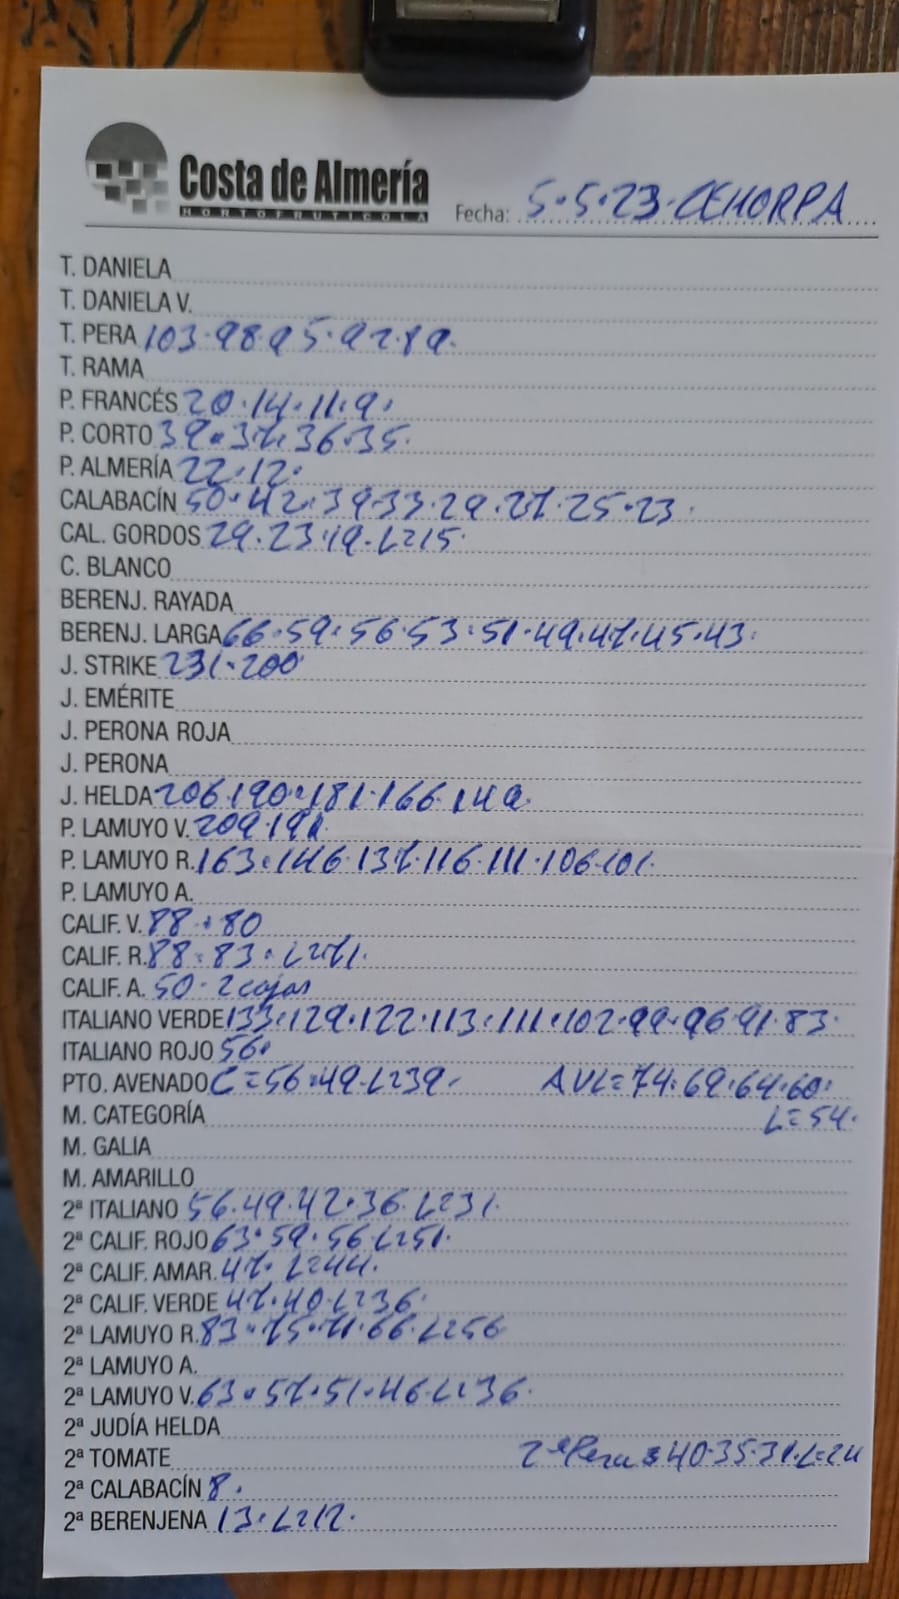 Costa de Almería
HORTOFRUTICOLA
Fecha: 5·5·23·CEHORPA
T. DANIELA
T. DANIELA V.
T. PERA 103·98·95·92·89·
T. RAMA
P. FRANCÉS 20·14·11·9·
P. CORTO 39·37·36·35·
P. ALMERÍA 22·12·
CALABACÍN 50·42·39·33·29·27·25·23·
CAL. GORDOS 29·23·19·L=15·
C. BLANCO
BERENJ. RAYADA
BERENJ. LARGA 66·59·56·53·51·49·47·45·43·
J. STRIKE 231·200
J. EMÉRITE
J. PERONA ROJA
J. PERONA
J. HELDA 206·190·181·166·149·
P. LAMUYO V. 209·191·
P. LAMUYO R. 163·146·137·116·111·106·101·
P. LAMUYO A.
CALIF. V. 88·80
CALIF. R. 88·83·L=71·
CALIF. A. 50·2 cajas
ITALIANO VERDE 133·129·122·113·111·102·99·96·91·83·
ITALIANO ROJO 56·
PTO. AVENADO C=56·49·L=39· AVL=74·69·64·60·
L=54·
M. CATEGORÍA
M. GALIA
M. AMARILLO
2ª ITALIANO 56·49·42·36·L=31·
2ª CALIF. ROJO 63·59·56·L=51·
2ª CALIF. AMAR. 47·L=44·
2ª CALIF. VERDE 47·40·L=36·
2ª LAMUYO R. 83·75·71·66·L=56
2ª LAMUYO A.
2ª LAMUYO V. 63·57·51·46·L=36·
2ª JUDÍA HELDA
2ª TOMATE 2ª Pera=40·35·31·L=24
2ª CALABACÍN 8·
2ª BERENJENA 13·L=12·